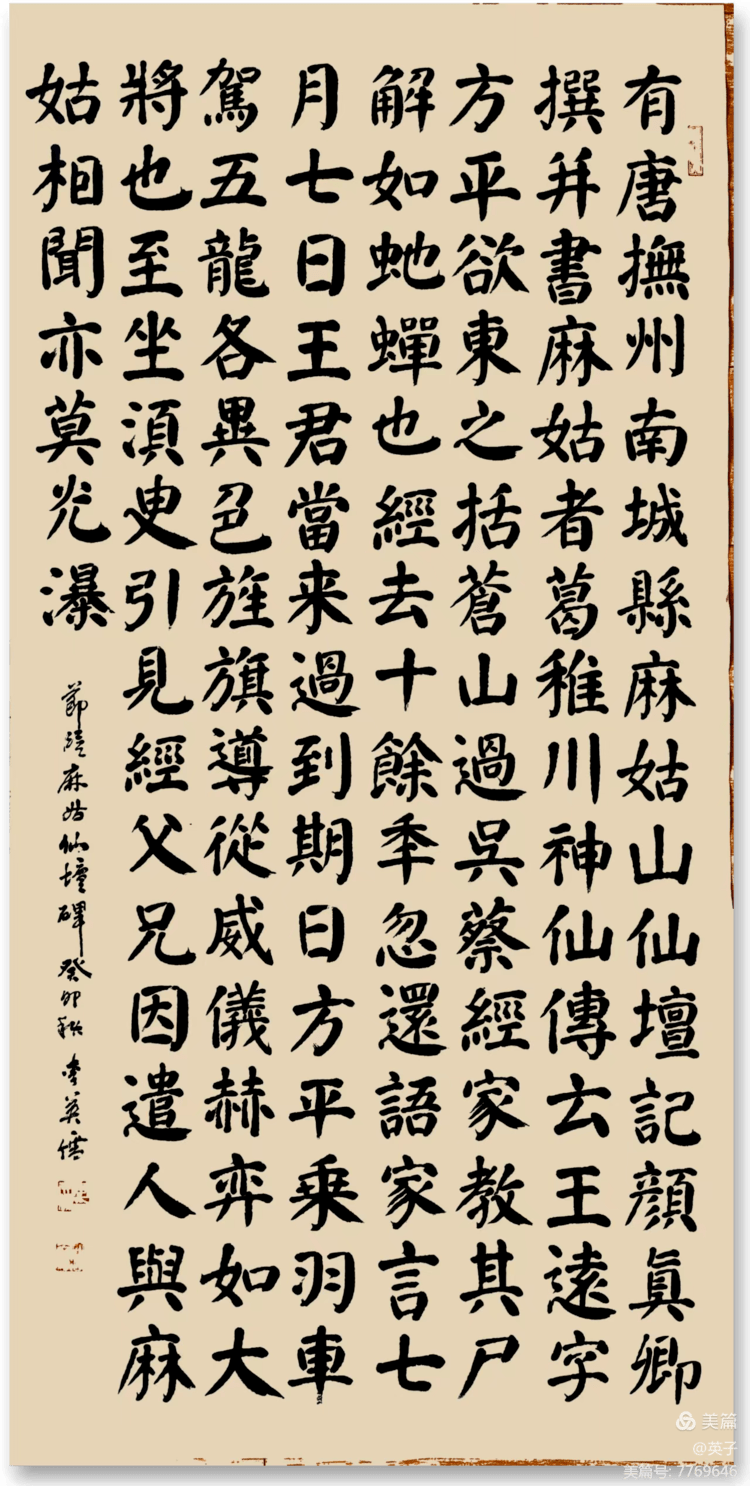 有唐撫州南城縣麻姑山仙壇記顏眞卿
撰并書麻姑者葛稚川神仙傳云王遠字
方平欲東之括蒼山過吳蔡經家教其尸
解如虵蟬也經去十餘年忽還語家言七
月七日王君當来過到期日方平乗羽車
駕五龍各異色旌旗導從威儀赫弈如大
將也至坐湏臾引見經父兄因遣人與麻
姑相聞亦莫炗瀑
節臨麻姑仙壇碑癸卯秋李英儒
美篇
@英子
美篇号: 7769646